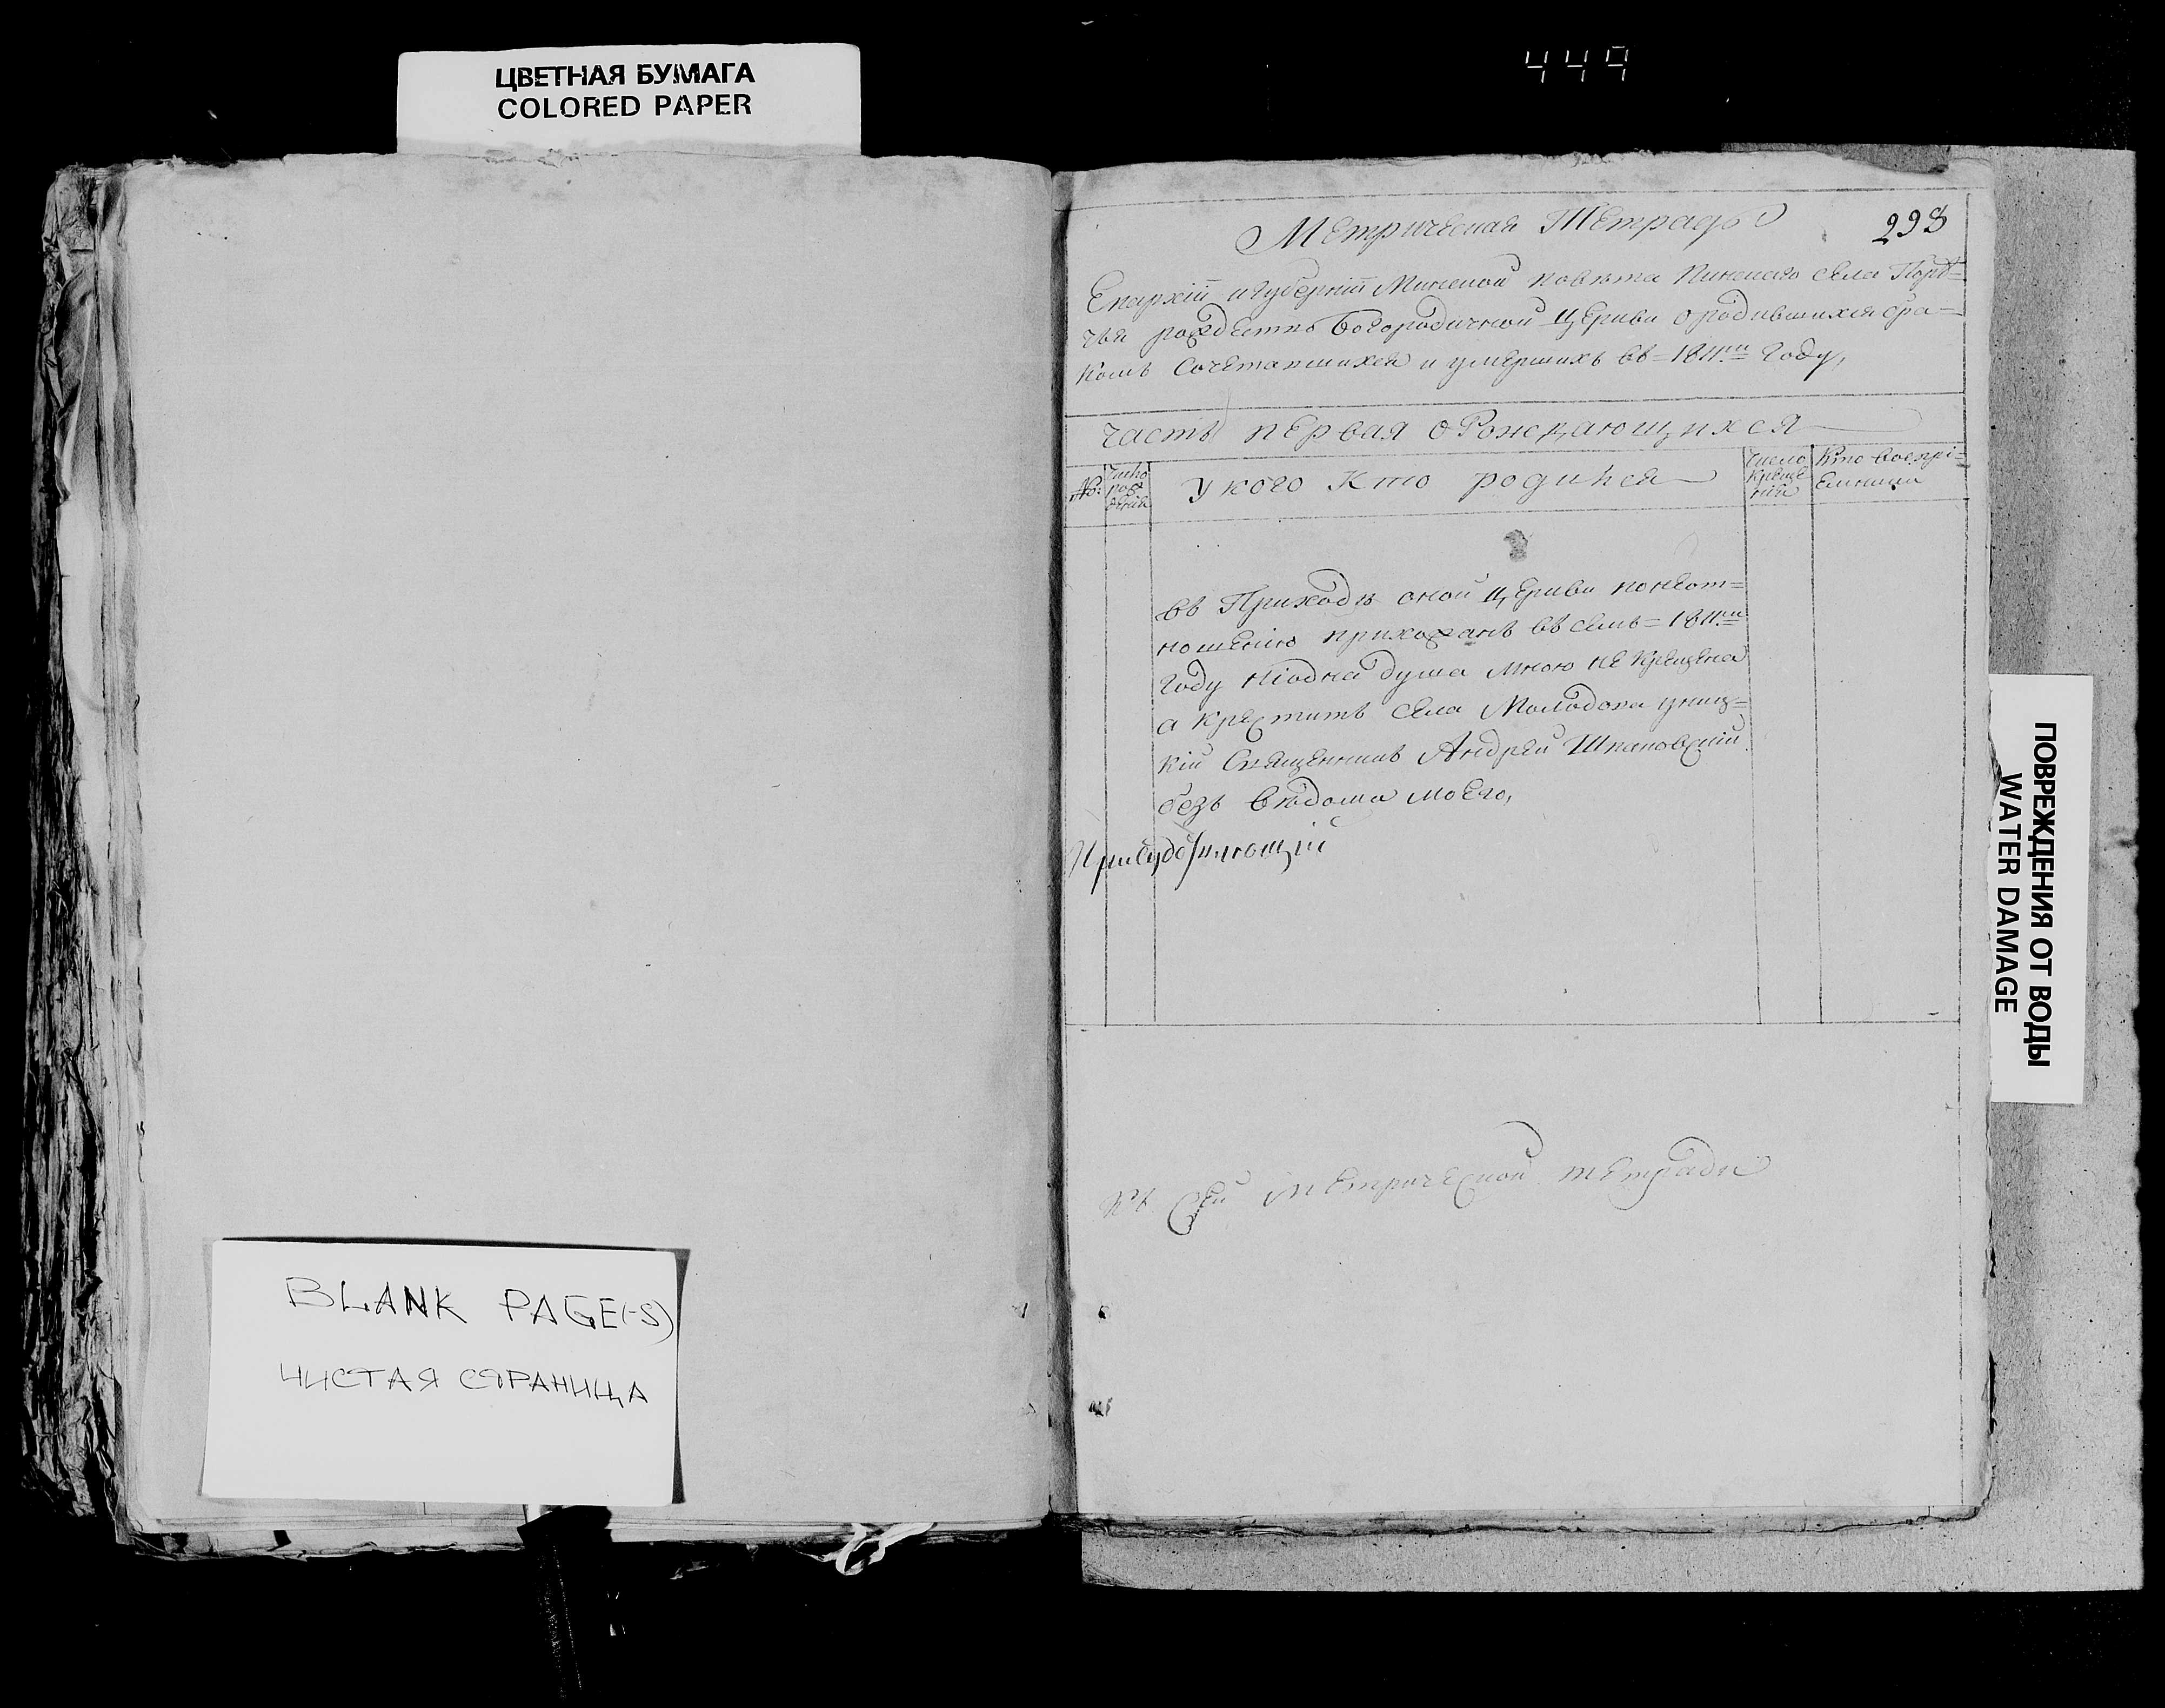 ЦВЕТНАЯ БУМАГА
COLORED PAPER
449
Метрическая Тетрадь
293
Епархіи и Губерніи Минской повѣта Пинскаго села Порѣ=
чья рождество Богородичной церкви о родившихся бра=
комъ Сочетавшихся и умершихъ въ = 1811мъ Году,
часть первая о Рождающихся
№: число рож денія
у кого Кто родился
Число Креще нія
Кто воспрі=
емники
въ Приходѣ оной церкви по неот=
ношенію прихожанъ въ семъ = 1811мъ
Году ніодна душа мною не крещена
а креститъ села Молодова униц=
кій Священникъ Андрей Шпановскій
безъ вѣдома моего,
Къ Сей метрической тетради
BLANK PAGE(-S)
ЧИСТАЯ СТРАНИЦА
ПОВРЕЖДЕНИЯ ОТ ВОДЫ
WATER DAMAGE